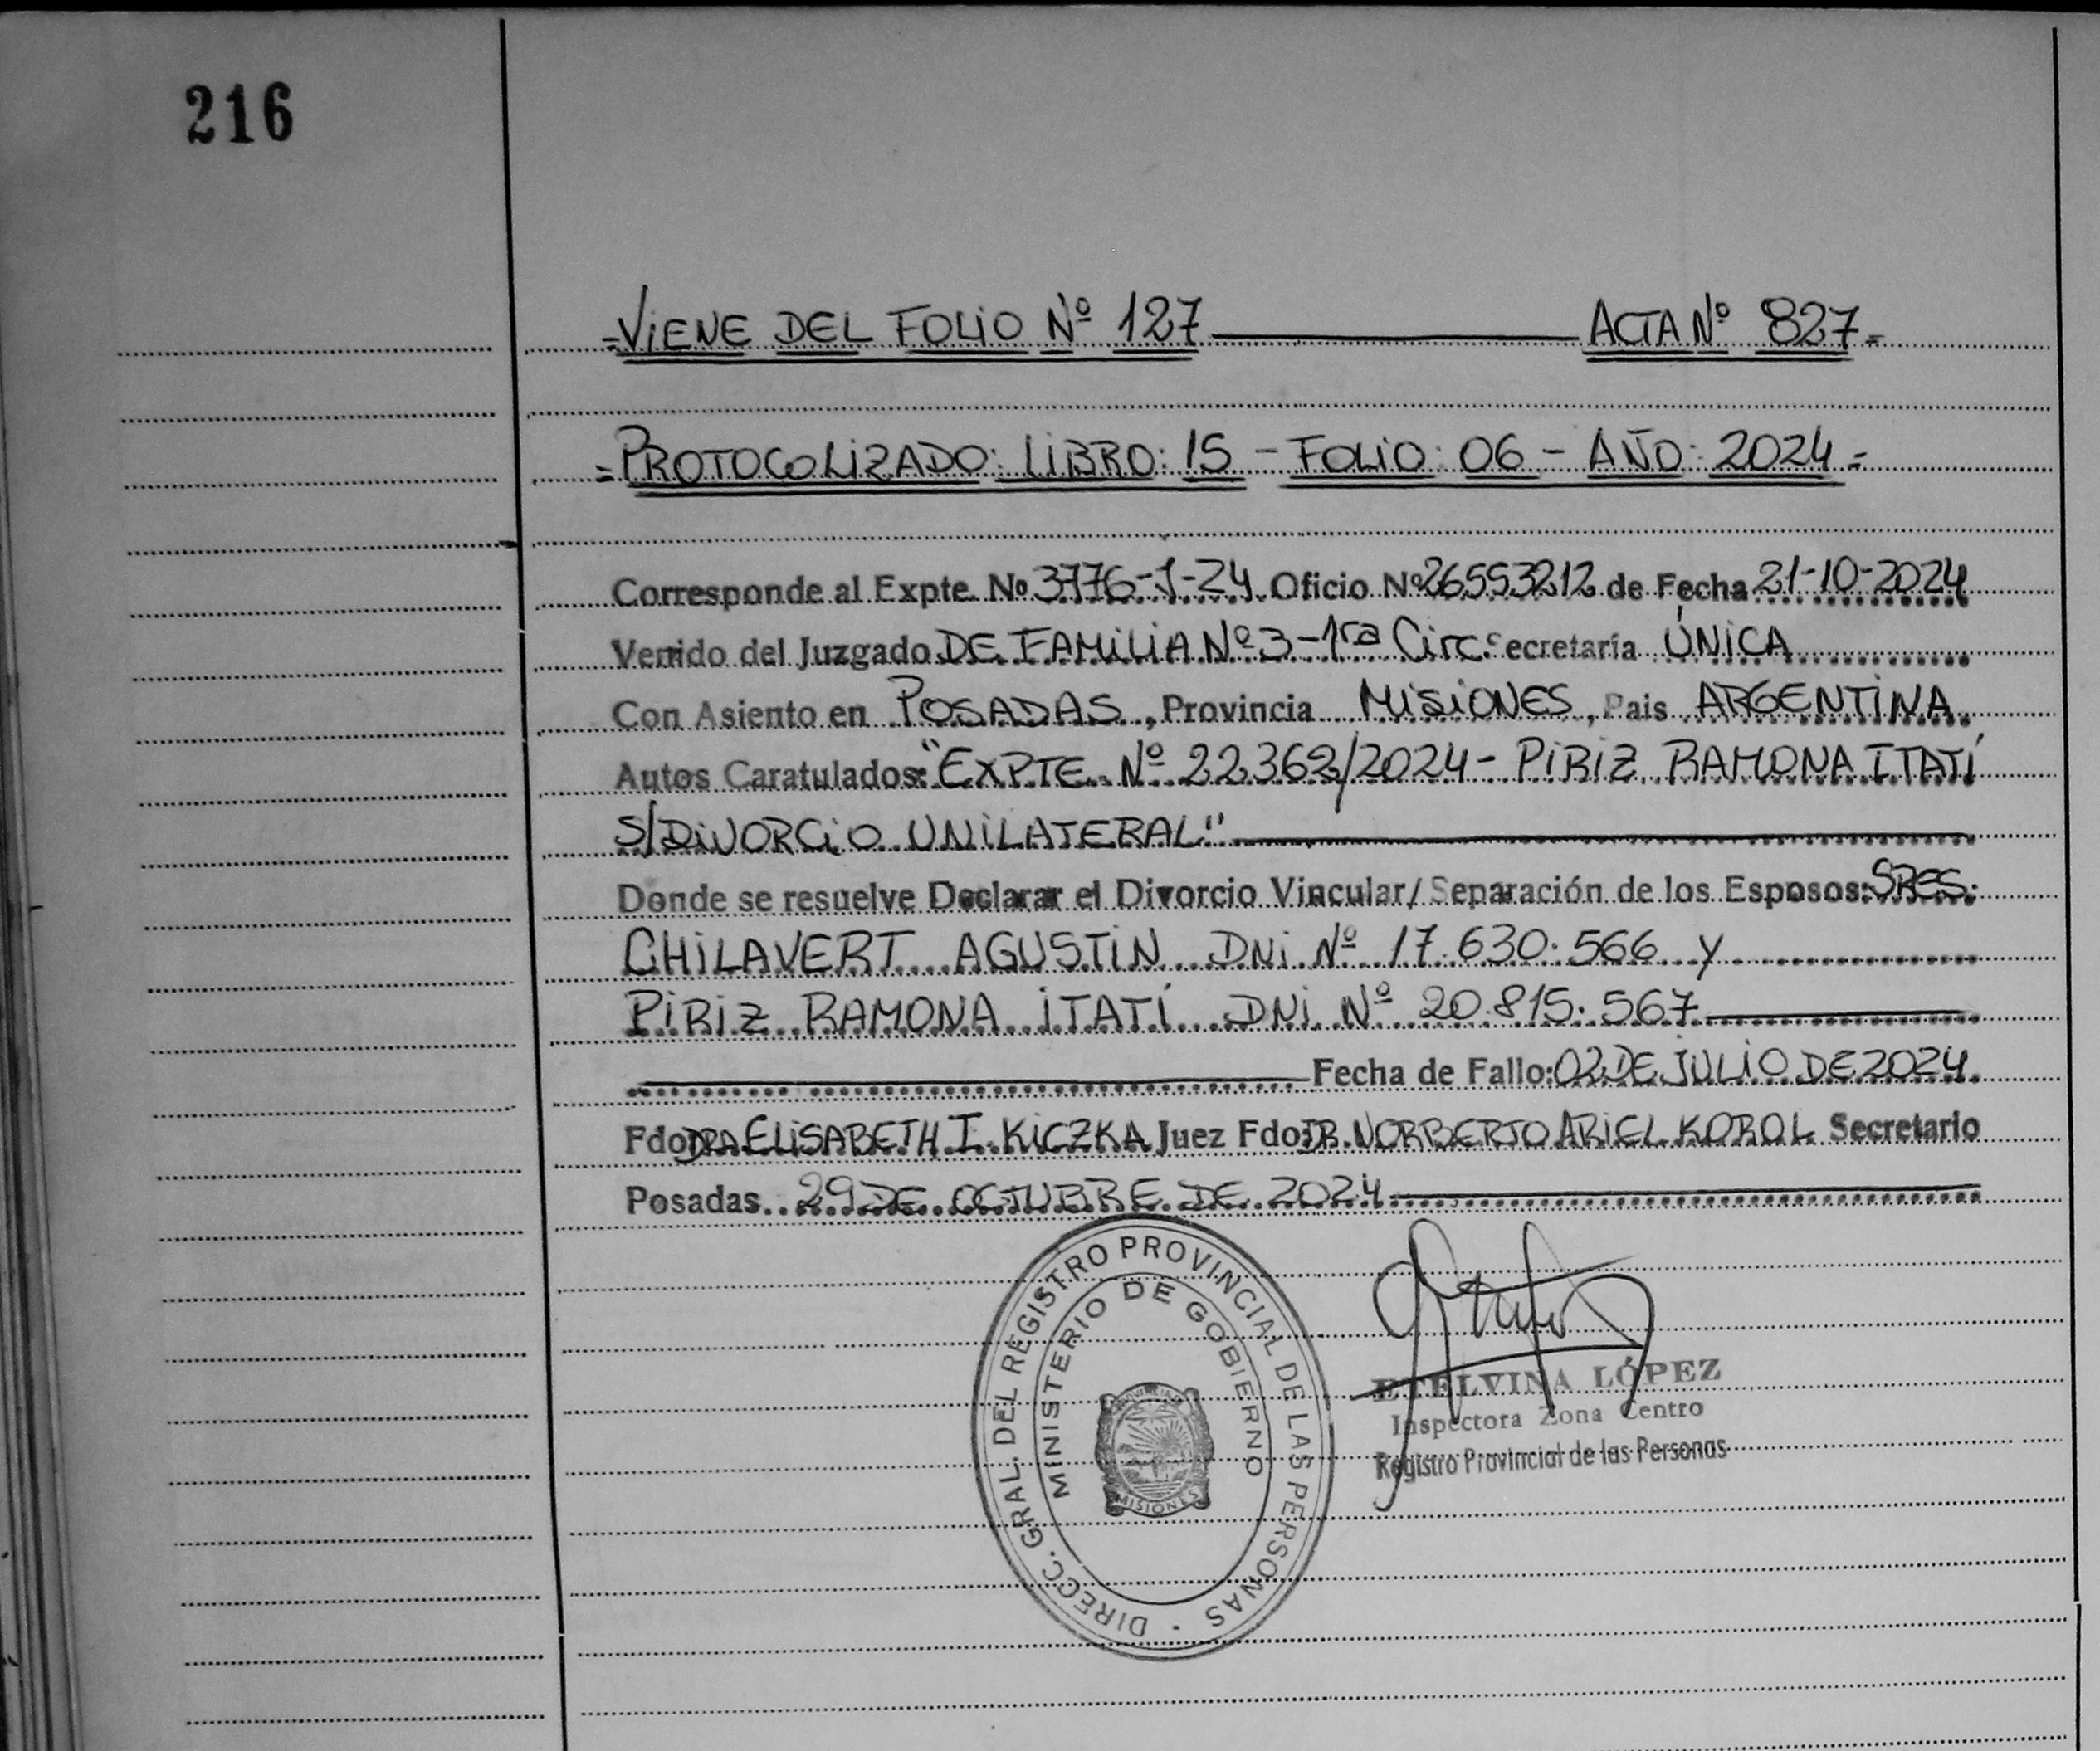 216
=VIENE DEL FOLIO Nº 127 ACTA Nº 827=
=PROTOCOLIZADO: LIBRO: 15 - FOLIO: 06 - AÑO: 2024=
Corresponde al Expte. Nº 3776-J-24 Oficio Nº 26553212 de Fecha 21-10-2024
Venido del Juzgado DE FAMILIA Nº 3-1ra Circ. Secretaría ÚNICA
Con Asiento en POSADAS, Provincia MISIONES, Pais ARGENTINA
Autos Caratulados: "EXPTE. Nº 22362/2024- PIRIZ RAMONA ITATÍ
S/DIVORCIO UNILATERAL"
Donde se resuelve Declarar el Divorcio Vincular/Separación de los Esposos: SRES.
CHILAVERT AGUSTIN DNI Nº 17.630.566 y
PIRIZ RAMONA ITATÍ DNI Nº 20.815.567
Fecha de Fallo: 02 DE JULIO DE 2024
Fdo: DRA ELISABETH I. KICZKA Juez Fdo: DR. NORBERTO ARIEL KOROL Secretario
Posadas 29 DE OCTUBRE DE 2024
DIRECC. GRAL. DEL REGISTRO PROVINCIAL DE LAS PERSONAS
MINISTERIO DE GOBIERNO
MISIONES
ETELVINA LÓPEZ
Inspectora Zona Centro
Registro Provincial de las Personas